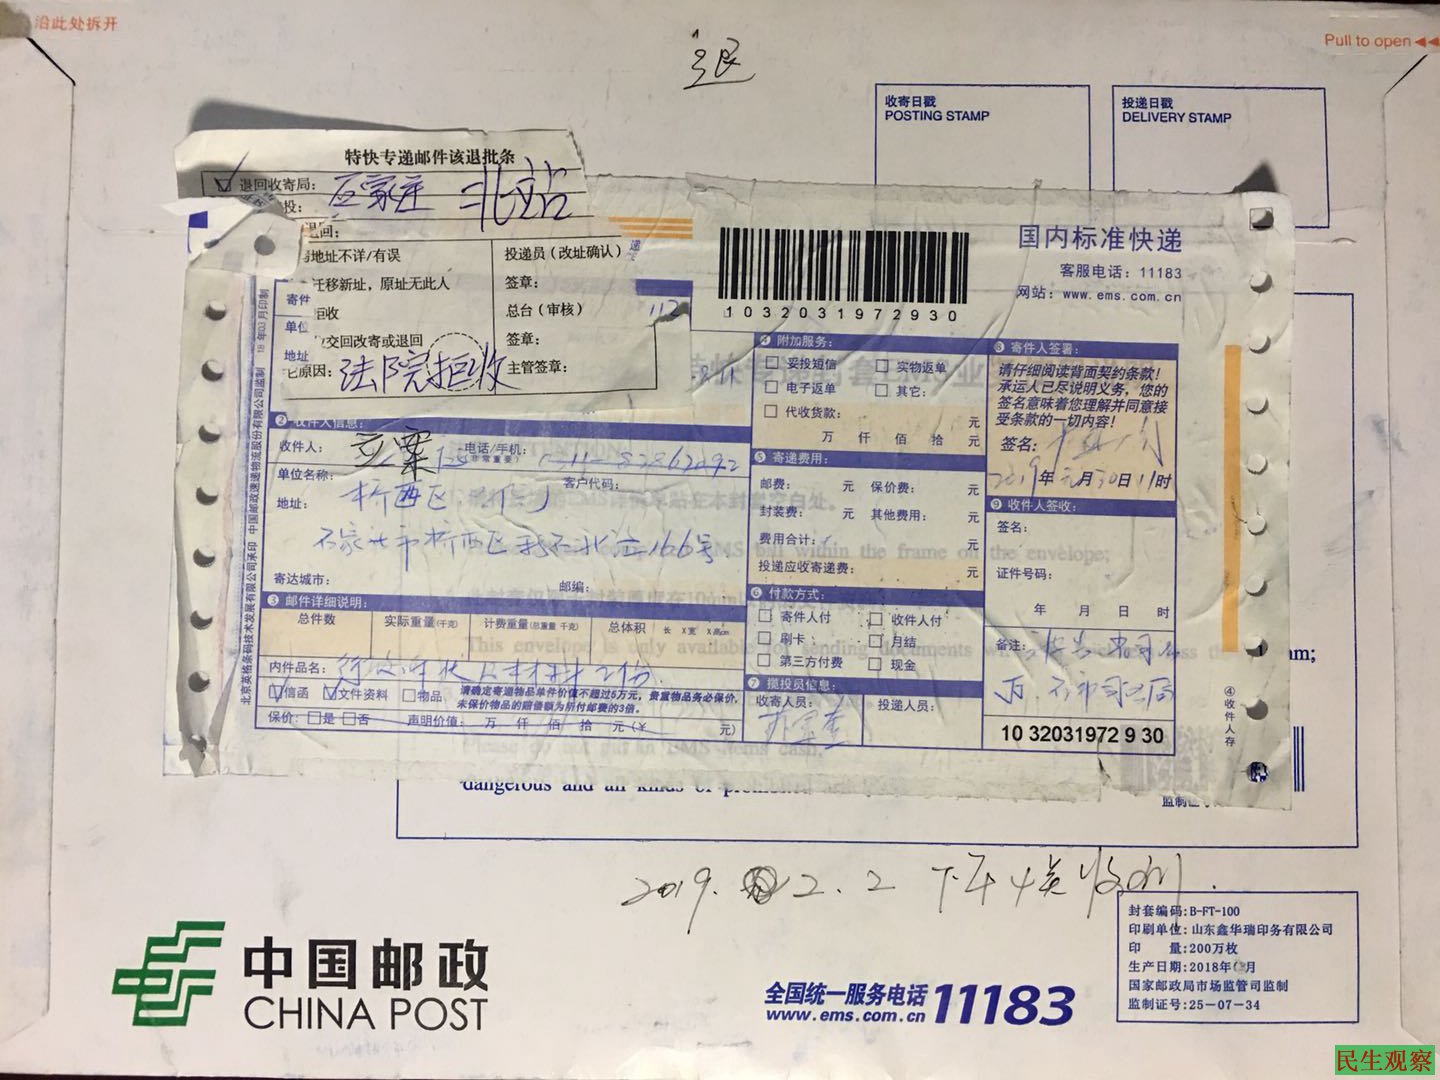 沿此处拆开
Pull to open
退
收寄日戳
POSTING STAMP
投递日戳
DELIVERY STAMP
特快专递邮件该退批条
退回收寄局：石家庄 北站
投：
退回：
地址不详/有误
迁移新址，原址无此人
拒收
交回改寄或退回
原因：法院拒收
投递员（改址确认）
签章：
总台（审核）
签章：
主管签章：
寄件
单位
地址
国内标准快递
客服电话：11183
网站：www.ems.com.cn
1032031972930
❷收件人信息：
收件人：
电话/手机：
(非常重要)
单位名称：
客户代码：
地址：桥西区
石家庄市桥西区新石北路166号
寄达城市：
邮编：
❸邮件详细说明：
总件数
实际重量(千克)
计费重量(总重量 千克)
总体积 长 X宽 X高cm
内件品名：
信函 文件资料 物品
请确定寄递物品单件价值不超过5万元，贵重物品务必保价，
未保价物品的赔偿额为所付邮费的3倍。
保价：是 否 声明价值： 万 仟 佰 拾 元(￥ 元)
❹附加服务：
妥投短信 实物返单
电子返单 其它：
代收货款： 元
万 仟 佰 拾 元
❺寄递费用：
邮费： 元 保价费： 元
封装费： 元 其他费用： 元
费用合计： 元
投递应收寄递费： 元
❻付款方式：
寄件人付 收件人付
刷卡 月结
第三方付费 现金
❼揽投员信息：
收寄人员：
投递人员：
❽寄件人签署：
请仔细阅读背面契约条款！
承运人已尽说明义务，您的
签名意味着您理解并同意接
受条款的一切内容！
签名：
2019年元月30日11时
❾收件人签收：
签名：
证件号码：
年 月 日 时
备注：
10 32031972 9 30
④收件人存
北京英格条码技术发展有限公司承印 中国邮政速递物流股份有限公司监制 18年03月印制
within the frame on the envelope;
This envelope is only available for sending documents
am;
dangerous and all kinds of
2019. 2.2 下午4点收到.
中国邮政
CHINA POST
全国统一服务电话 11183
www.ems.com.cn
封套编码：B-FT-100
印刷单位：山东鑫华瑞印务有限公司
印 量：200万枚
生产日期：2018年 月
国家邮政局市场监管司监制
监制证号：25-07-34
民生观察